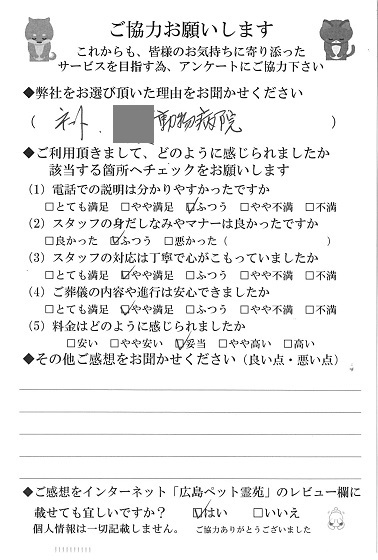 ご協力お願いします
これからも、皆様のお気持ちに寄り添った
サービスを目指す為、アンケートにご協力下さい
◆弊社をお選び頂いた理由をお聞かせください
( ネット. 動物病院 )
◆ご利用頂きまして、どのように感じられましたか
該当する箇所へチェックをお願いします
(1) 電話での説明は分かりやすかったですか
□とても満足 □やや満足 ☑ふつう □やや不満 □不満
(2) スタッフの身だしなみやマナーは良かったですか
□良かった ☑ふつう □悪かった ( )
(3) スタッフの対応は丁寧で心がこもっていましたか
□とても満足 ☑やや満足 □ふつう □やや不満 □不満
(4) ご葬儀の内容や進行は安心できましたか
□とても満足 ☑やや満足 □ふつう □やや不満 □不満
(5) 料金はどのように感じられましたか
□安い □やや安い ☑妥当 □やや高い □高い
◆その他ご感想をお聞かせください (良い点・悪い点)
◆ご感想をインターネット「広島ペット霊苑」のレビュー欄に
載せても宜しいですか？ ☑はい □いいえ
個人情報は一切記載しません。 ご協力ありがとうございました